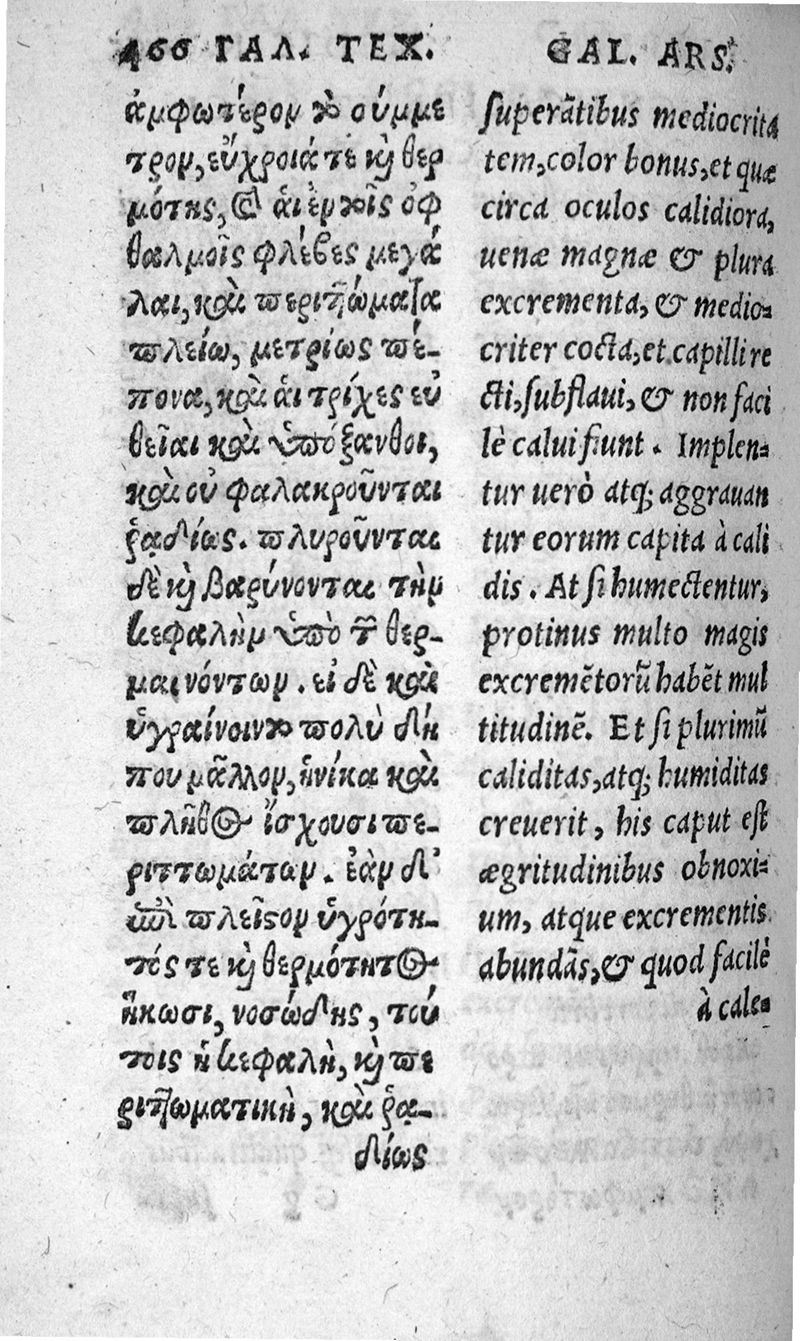 466 ΓΑΛ. ΤΕΧ.
ἀμφωτέρον τὸ σύμμε
τρον, εὔχροιά τε καὶ θερ
μότης, καὶ ἁι ἐν τοῖς ὀφ
θαλμοῖς φλέβες μεγά
λαι, καὶ περιττώματα
πλείω, μετρίως πέ-
πονα, καὶ ἁι τρίχες εὐ
θεῖαι καὶ ὑπόξανθοι,
καὶ οὐ φαλακροῦνται
ῥαδίως. πληροῦνται
δὲ καὶ βαρύνονται τὴν
κεφαλὴν ὑπὸ τῶν θερ-
μαινόντων. εἰ δὲ καὶ
ὑγραίνοιντο πολὺ δή
που μᾶλλον, ἡνίκα καὶ
πλῆθος ἴσχουσι πε-
ριττωμάτων. ἐὰν δ'
ἐπὶ πλεῖστον ὑγρότη-
τός τε καὶ θερμότητος
ἥκωσι, νοσώδης, τού
τοις ἡ κεφαλὴ, καὶ πε
ριττωματικὴ, καὶ ῥα-
δίως
GAL. ARS.
superãtibus mediocrita
tem, color bonus, et quæ
circa oculos calidiora,
uenæ magnæ & plura
excrementa, & medio-
criter cocta, et capilli re
cti, subflaui, & non faci
lè calui fiunt. Implen-
tur uerò atq; aggrauan
tur eorum capita à cali
dis. At si humectentur,
protinus multo magis
excremẽtorũ habẽt mul
titudinẽ. Et si plurimũ
caliditas, atq; humiditas
creuerit, his caput est
ægritudinibus obnoxi-
um, atque excrementis
abundãs, & quod facilè
à cale-